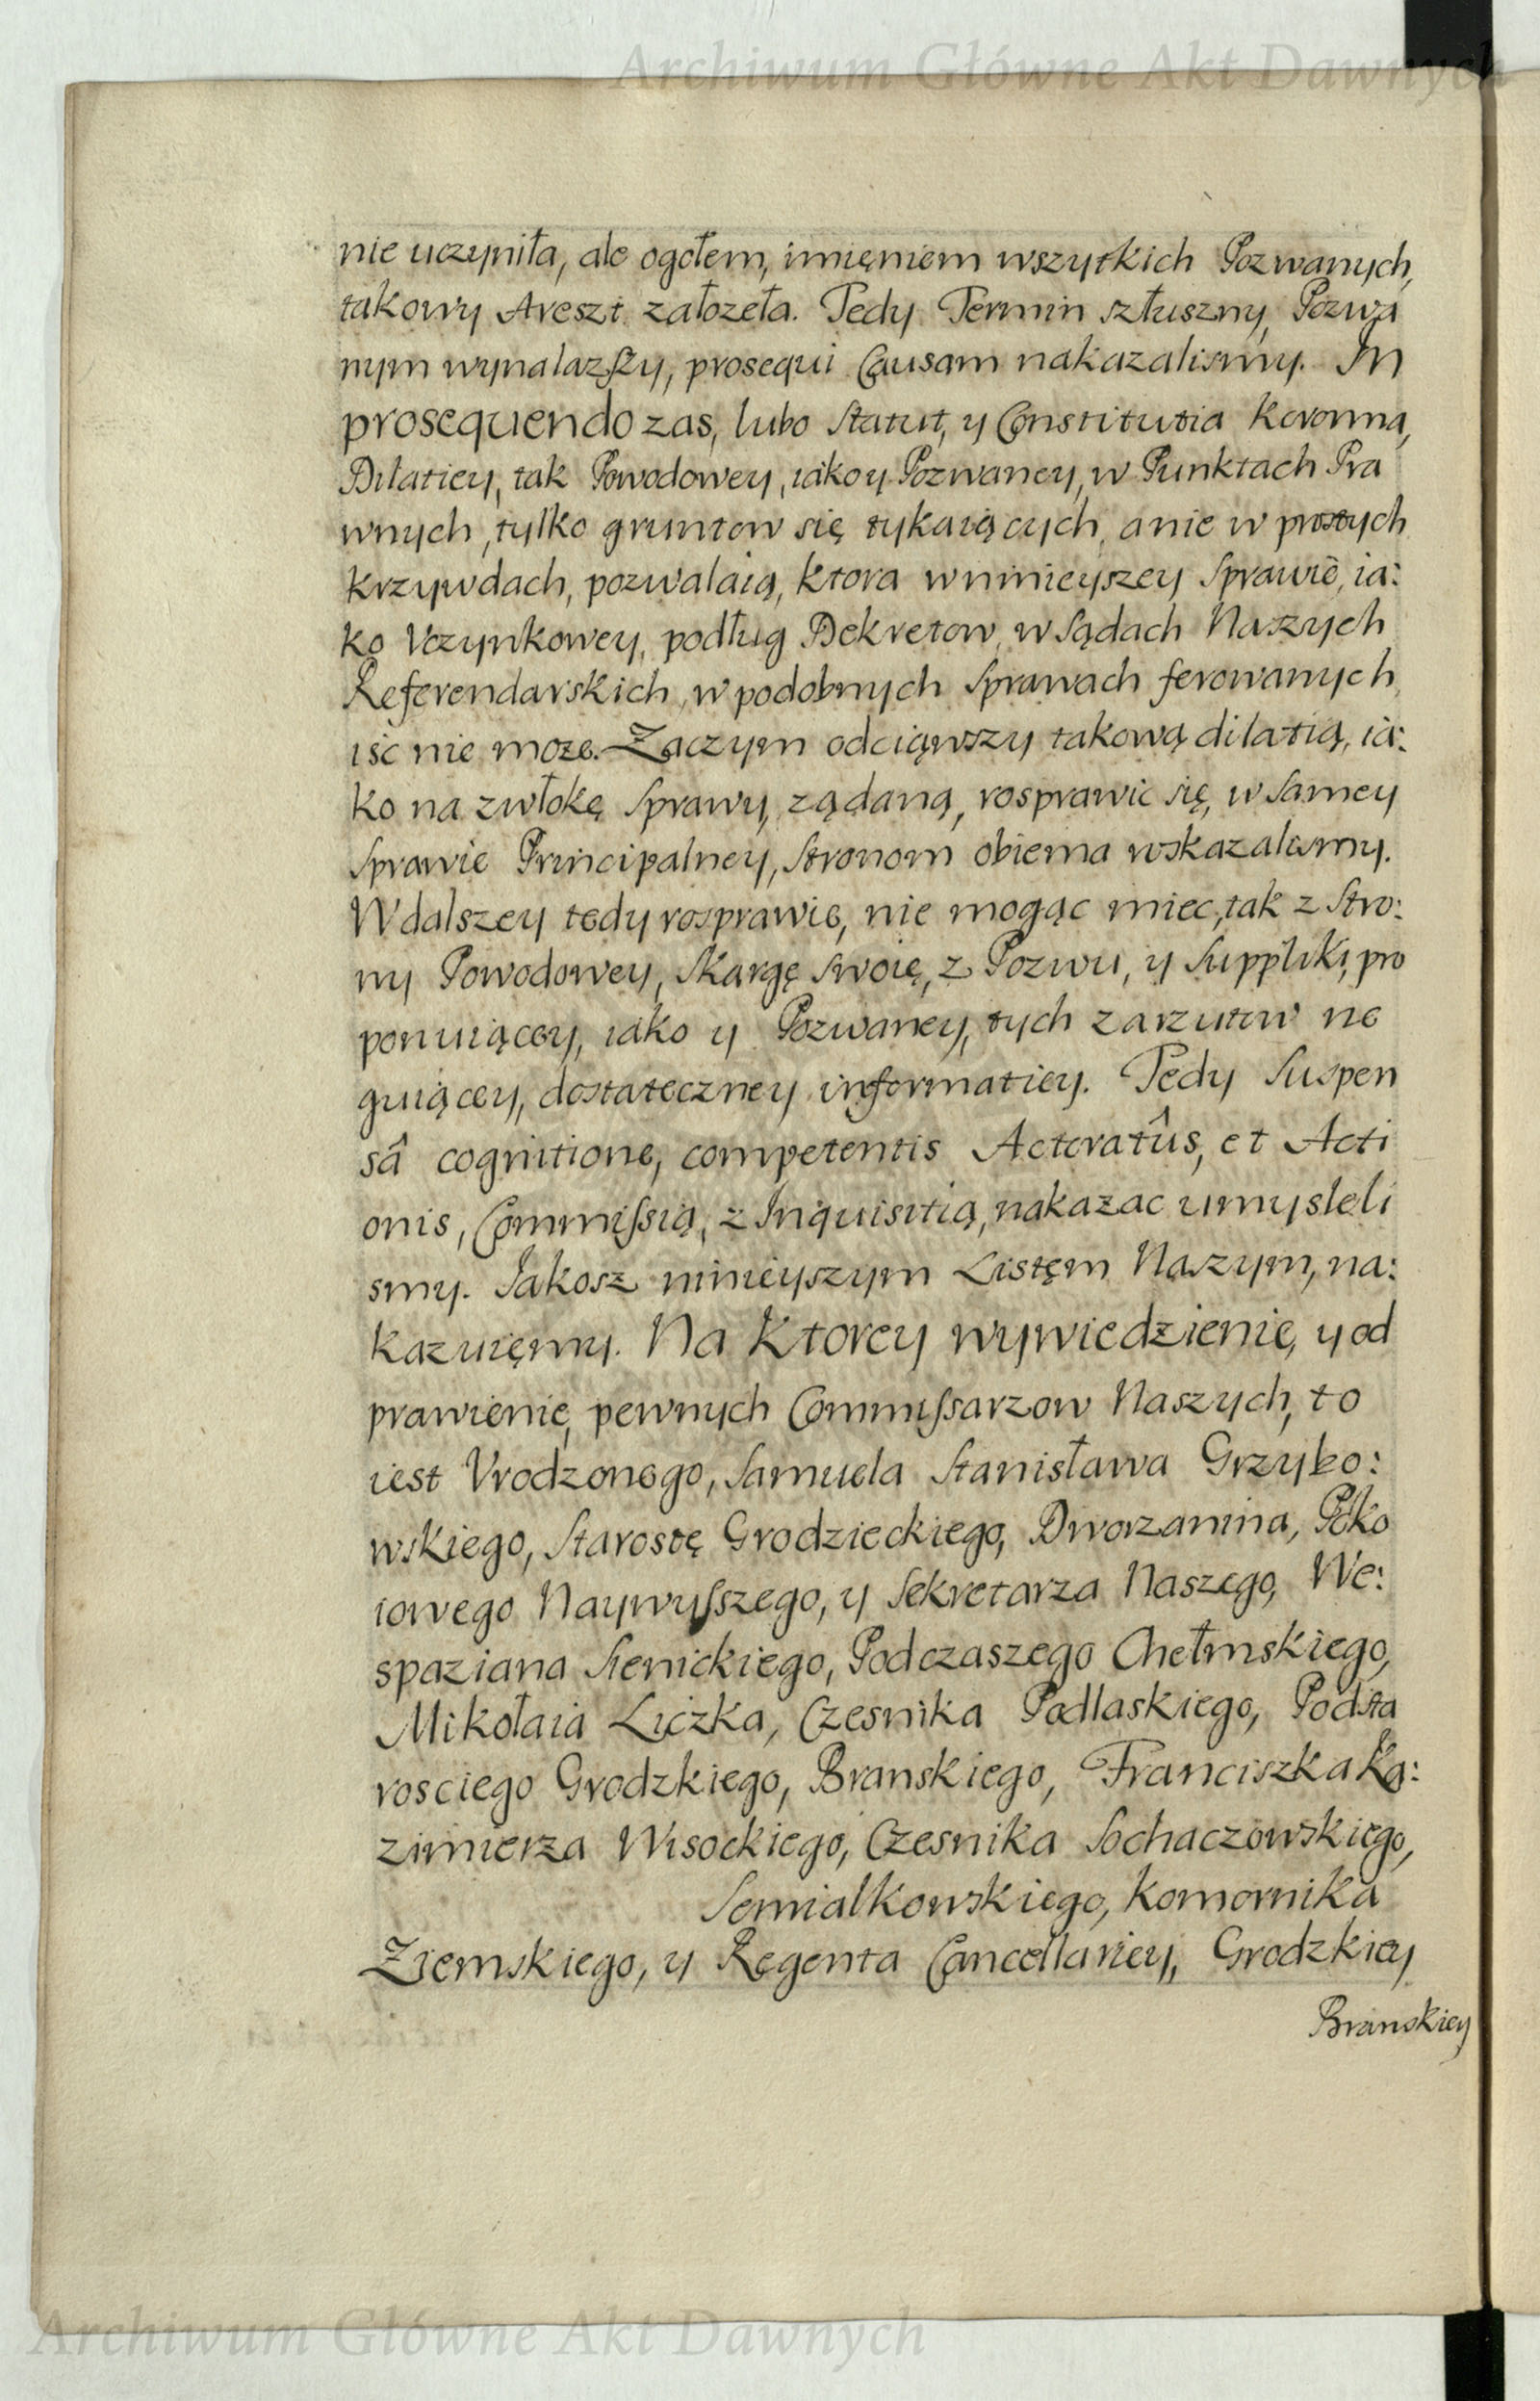 Archiwum Główne Akt Dawnych
nie uczyniła, ale ogołem, imięniem wszytkich Pozwanych,
takowy Areszt załozeła. Tedy Termin szłuszny, Pozwa
nym wynalazszy, prosequi Causam nakazalismy. In
prosequendo zas, lubo Statut, y Constitutia Koronna,
Dilatiey, tak Powodowey, iako y Pozwaney, w Punktach Pra
wnych, tylko gruntow się tykaiących, a nie w prostych
krzywdach, pozwalaią, ktora w ninieyszey Sprawie, ia:
ko Vczynkowey, podług Dekretow, w Sądach Naszych
Referendarskich, w podobnych Sprawach ferowanych,
iść nie moze. Zaczym odciąwszy takową dilatią, ia:
ko na zwłokę Sprawy, ządaną, rosprawic się, w Samey
Sprawie Principalney, Stronom obiema wskazalismy.
W dalszey tedy rosprawie, nie mogąc miec, tak z Stro:
ny Powodowey, Skargę Swoię, z Pozwu, y Suppliki, pro
ponuiącey, iako y Pozwaney, tych zarzutow ne
guiącey, dostateczney informatiey. Tedy Suspen
sâ cognitione, competentis Actoratûs, et Acti
onis, Commissią, z Inquisitią, nakazac umysleli
smy. Jakosz ninieyszym Listęm Naszym, na:
kazuięmy. Na Ktorey wywiedzienie, y od
prawienie, pewnych Commissarzow Naszych, to
iest Vrodzonego, Samuela Stanisława Grzybo:
wskiego, Starostę Grodzieckiego, Dworzanina, Poko
iowego Naywysszego, y Sekretarza Naszego, We:
spaziana Sienickiego, Podczaszego Chełmskiego,
Mikołaia Liczka, Czesnika Podlaskiego, Podsta
rosciego Grodzkiego, Branskiego, Franciszka Ka:
zimierza Wisockiego, Czesnika Sochaczowskiego,
Semialkowskiego, Komornika
Ziemskiego, y Regenta Cancellariey, Grodzkiey
Branskiey
Archiwum Główne Akt Dawnych